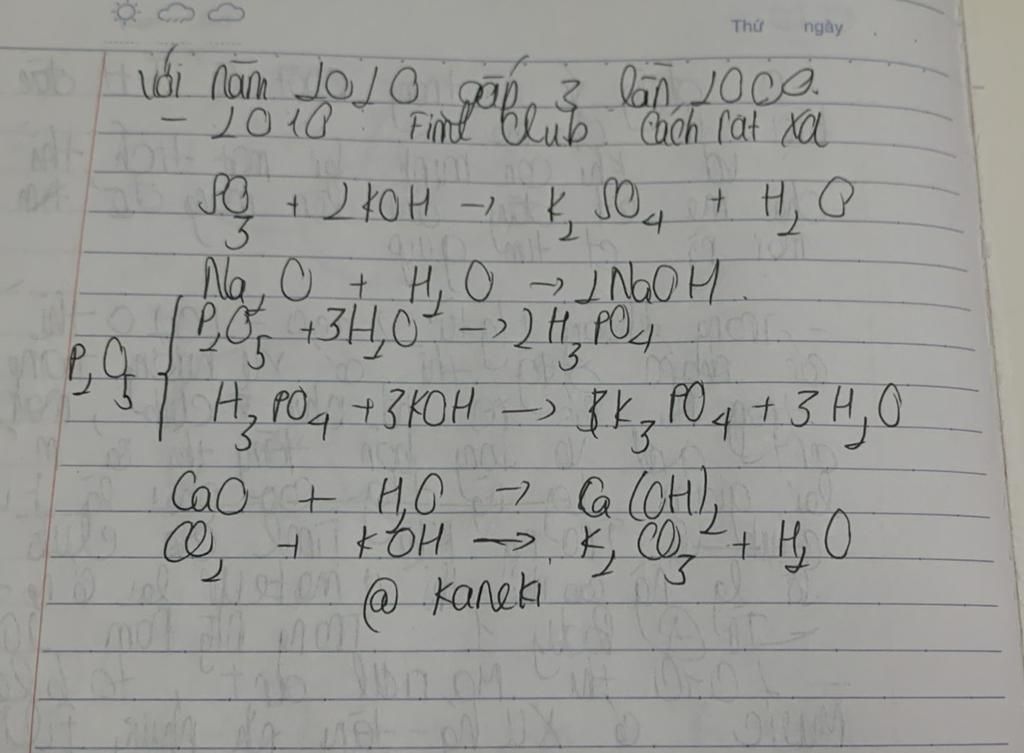 Thứ ngày
với năm 1010 gấp 3 lần 1000.
- 2010 Find Club Cách rất xa
SO3 + 2KOH → K2SO4 + H2O
Na2O + H2O → 2NaOH.
P2O5 + 3H2O → 2H3PO4
P2O5
H3PO4 + 3KOH → K3PO4 + 3H2O
CaO + H2O → Ca(OH)2
CO2 + KOH → K2CO3 + H2O
@ kaneki